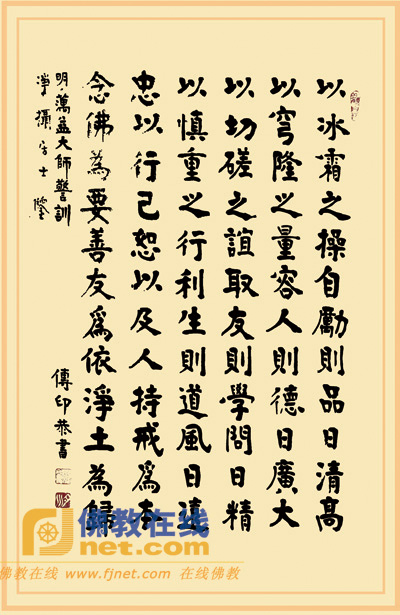 以冰霜之操自勵則品日清高
以穹隆之量容人則德日廣大
以切磋之誼取友則學問日精
以慎重之行利生則道風日遠
忠以行己恕以及人持戒為本
念佛為要善友為依淨土為歸
明·蕅益大師警訓
淨攝居士鑒
傳印恭書
佛教在线
fjnet.com
佛教在线 www.fjnet.com 在线佛教